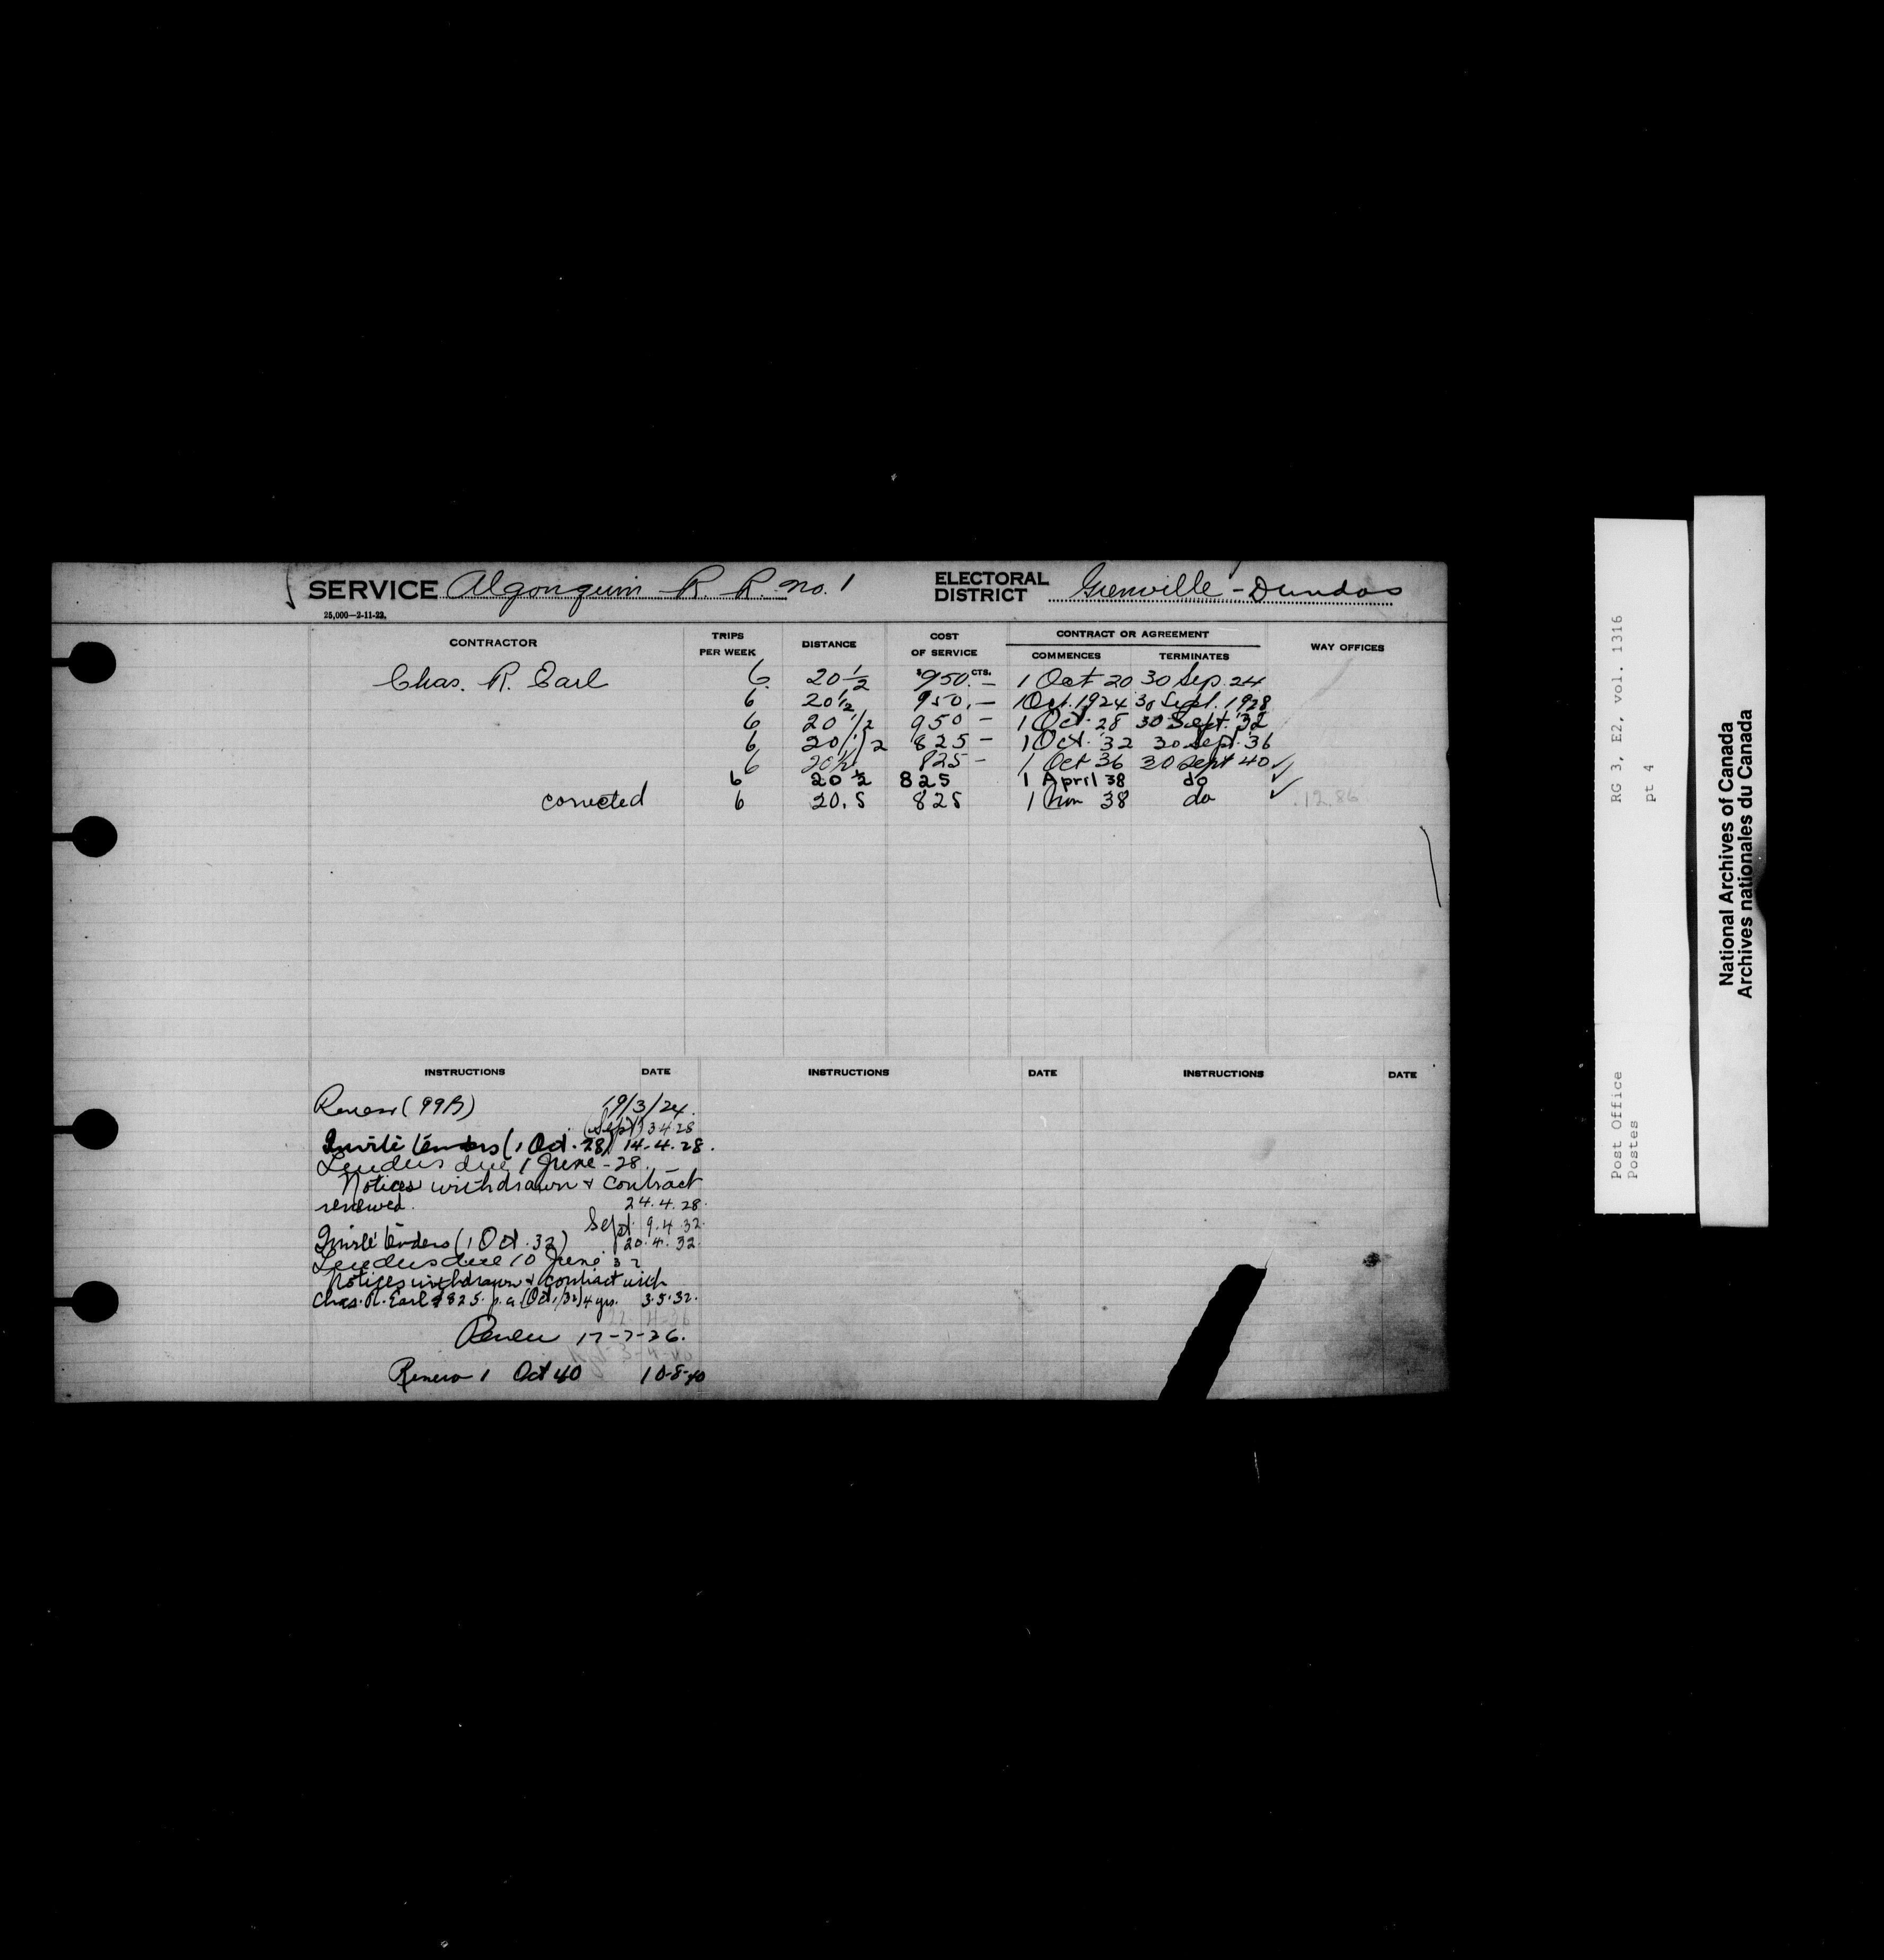 SERVICE Algonquin R. R. no. 1 ELECTORAL DISTRICT Grenville - Dundas
25,000—2-11-23.
CONTRACTOR TRIPS PER WEEK DISTANCE COST OF SERVICE CONTRACT OR AGREEMENT COMMENCES TERMINATES WAY OFFICES
Chas. R. Earl 6 20 1/2 $950.CTS.— 1 Oct 20 30 Sep. 24
6 20 1/2 950.— 1 Oct. 1924 30 Sept. 1928
6 20 1/2 950 — 1 Oct. 28 30 Sept. 32
6 20 1/2 825 — 1 Oct. 32 30 Sept. 36
6 20 1/2 825 — 1 Oct 36 30 Sept 40 ✓
6 20 1/2 825 1 April 38 do ✓
corrected 6 20.5 825 1 38 do ✓ 12.86
INSTRUCTIONS DATE INSTRUCTIONS DATE INSTRUCTIONS DATE
Renew (99B) 19/3/24.
(Sept) 3.4.28
Invite tenders (1 Oct. 28) 14.4.28.
Tenders due 1 June - 28.
Notices withdrawn & contract
renewed. 24.4.28.
Sept. 9.4.32.
Invite tenders (1 Oct. 32) 20.4.32.
Tenders due 10 June 32
Notices withdrawn & contract with
Chas. R. Earl $825. p.a. (Oct. 1/32) 4 yrs. 3.5.32.
Renew 17-7-36.
3-4-40
Renew 1 Oct 40 10-8-40
Post Office RG 3, E2, vol. 1316
Postes pt 4
National Archives of Canada
Archives nationales du Canada